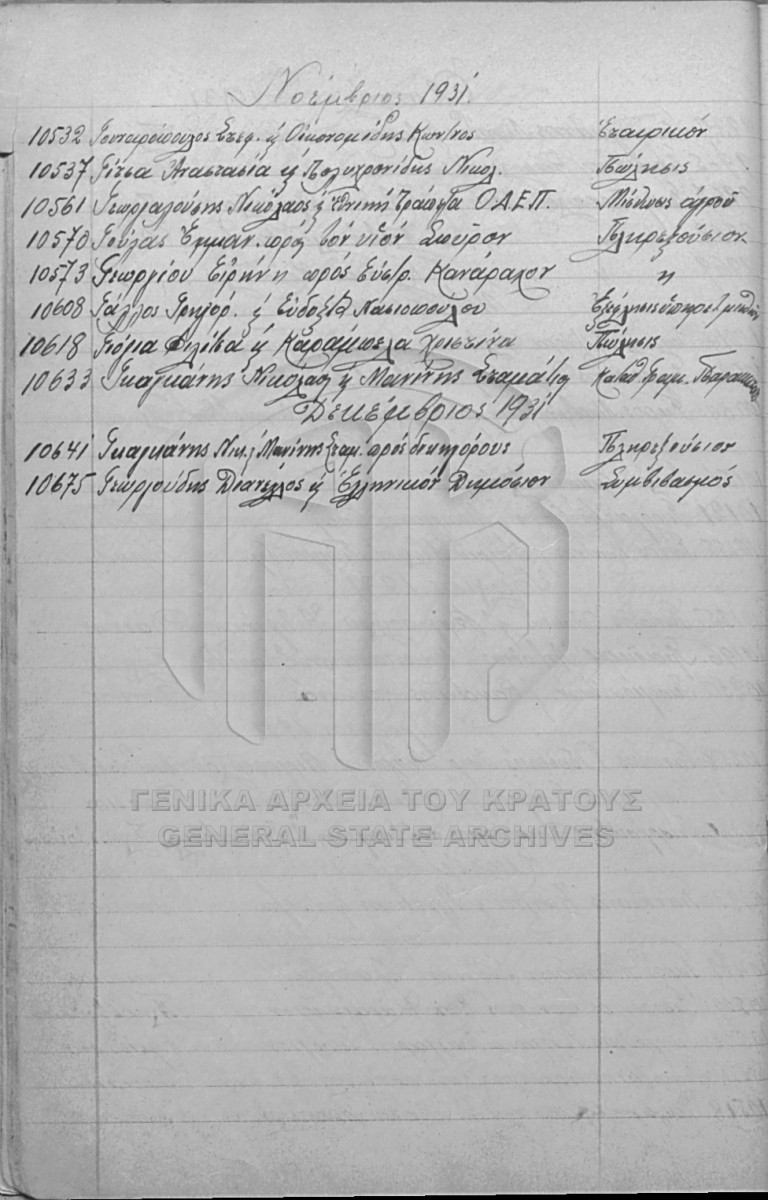 Νοέμβριος 1931.
10532 Γονταρόπουλος Στεφ. ή Οικονομίδης Κων/νος Εταιρικόν
10537 Γίτσα Αναστασία ή Πολυχρονίδης Νικολ. Πώλησις
10561 Γεωργαλούσης Νικόλαος ή Εθνική Τράπεζα Ο.Δ.Ε.Π. Μίσθωσις αγρού
10570 Γούλας Εμμαν. προς τον υιόν Σπύρον Πληρεξούσιον
10573 Γεωργίου Ειρήνη προς Ευστρ. Κανάραλον "
10608 Γάλλος Γρηγόρ. ή Ευδοξία Νασιοπούλου
10618 Γιόμα Φιλίτσα ή Καράμπελα Χριστίνα Πώλησις
10633 Γκαγκάνης Νικόλαος ή Μανίνης Σταμάτιος
Δεκέμβριος 1931
10641 Γκαγκάνης Νικ. ή Μανίνης Σταμ. προς δικηγόρους Πληρεξούσιον
10675 Γεωργούδης Διανέλλος ή Ελληνικόν Δημόσιον Συμβιβασμός
ΓΕΝΙΚΑ ΑΡΧΕΙΑ ΤΟΥ ΚΡΑΤΟΥΣ
GENERAL STATE ARCHIVES